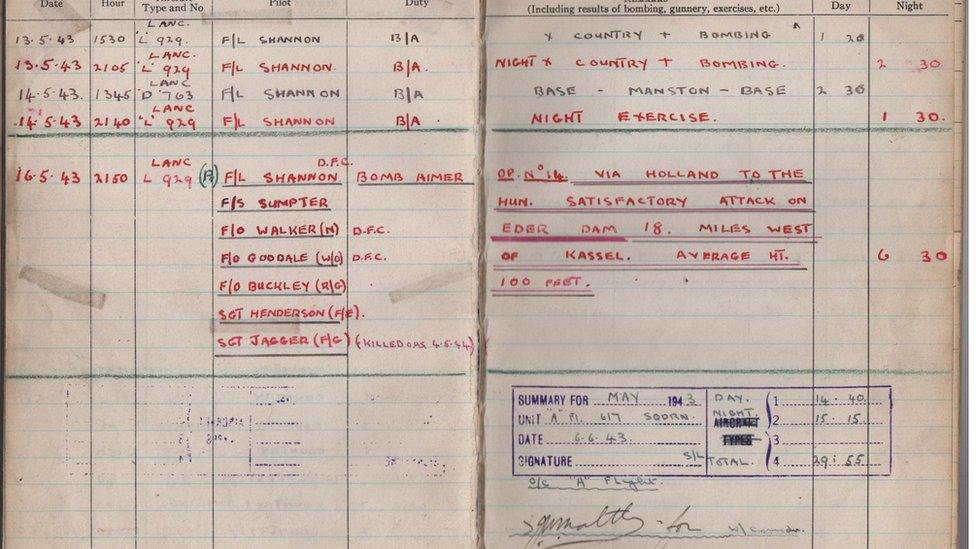 Date Hour Type and No Pilot Duty (Including results of bombing, gunnery, exercises, etc.) Day Night
LANC.
13.5.43 1530 "L" 929. F/L SHANNON B/A X COUNTRY + BOMBING 1 20
LANC.
13.5.43 2105 "L" 929 F/L SHANNON. B/A. NIGHT X COUNTRY + BOMBING. 2 30
LANC
14.5.43. 1345 "D" 763 F/L SHANNON B/A BASE - MANSTON - BASE 2 30
LANC
14.5.43 2140 "L" 929 F/L SHANNON B/A. NIGHT EXERCISE. 1 30.
LANC D.F.C.
16.5.43 2150 L 929 F/L SHANNON BOMB AIMER OP. No 14. VIA HOLLAND TO THE
F/S SUMPTER HUN. SATISFACTORY ATTACK ON
F/O WALKER (N) D.F.C. EDER DAM 18. MILES WEST
F/O GOODALE (W/O) D.F.C. OF KASSEL. AVERAGE HT. 6 30
F/O BUCKLEY (R/G) 100 FEET.
SGT HENDERSON (F/E).
SGT JAGGER (F/G) (KILLED OAS 4.5.44)
SUMMARY FOR MAY 1943 DAY. 1 14.40.
UNIT "A" Fl. 617 SQDRN. NIGHT. AIRCRAFT 2 15.15.
DATE 6.6.43. TYPES 3
SIGNATURE S/L TOTAL. 4 29:55
O/C "A" Flight.
for W/Comdr.